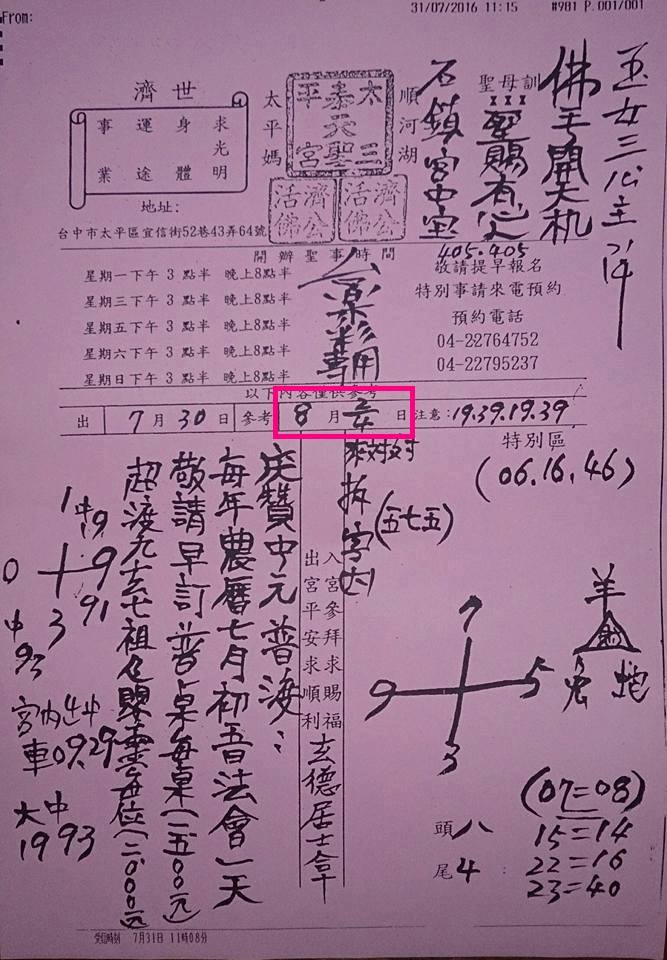 From:
31/07/2016 11:15 #981 P.001/001
玉女三公主降
佛手開天机
聖母訓
聖賜有心人
石鎮宮中宝
405.405
順河湖
太三
泰天聖宮
平
太平媽
濟公活佛
濟公活佛
濟世
求光明
身體
運途
事業
地址:
台中市太平區宜信街52巷43弄64號
開辦聖事時間
星期一下午 3 點半 晚上8點半
星期三下午 3 點半 晚上8點半
星期五下午 3 點半 晚上8點半
星期六下午 3 點半 晚上8點半
星期日下午 3 點半 晚上8點半
敬請提早報名
特別事請來電預約
預約電話
04-22764752
04-22795237
以下內容僅供參考
出 7月30日 參考 8月 日 注意:19.39.19.39
特別區
(06.16.46)
拆字內
(五七五)
慶贊中元普渡:
每年農曆七月初五法會一天
敬請早訂普桌每桌(二五00元)
超渡九玄七祖
(二000元)
入宮參拜求賜福
出宮平安求順利
玄德居士拿
1中19
0 9
3 91
中93
宮內
車09.29
大中
1993
7
9 5
3
羊
兔 蛇
頭八
尾4
(07=08)
15=14
22=16
23=40
受信時刻 7月31日 11時08分